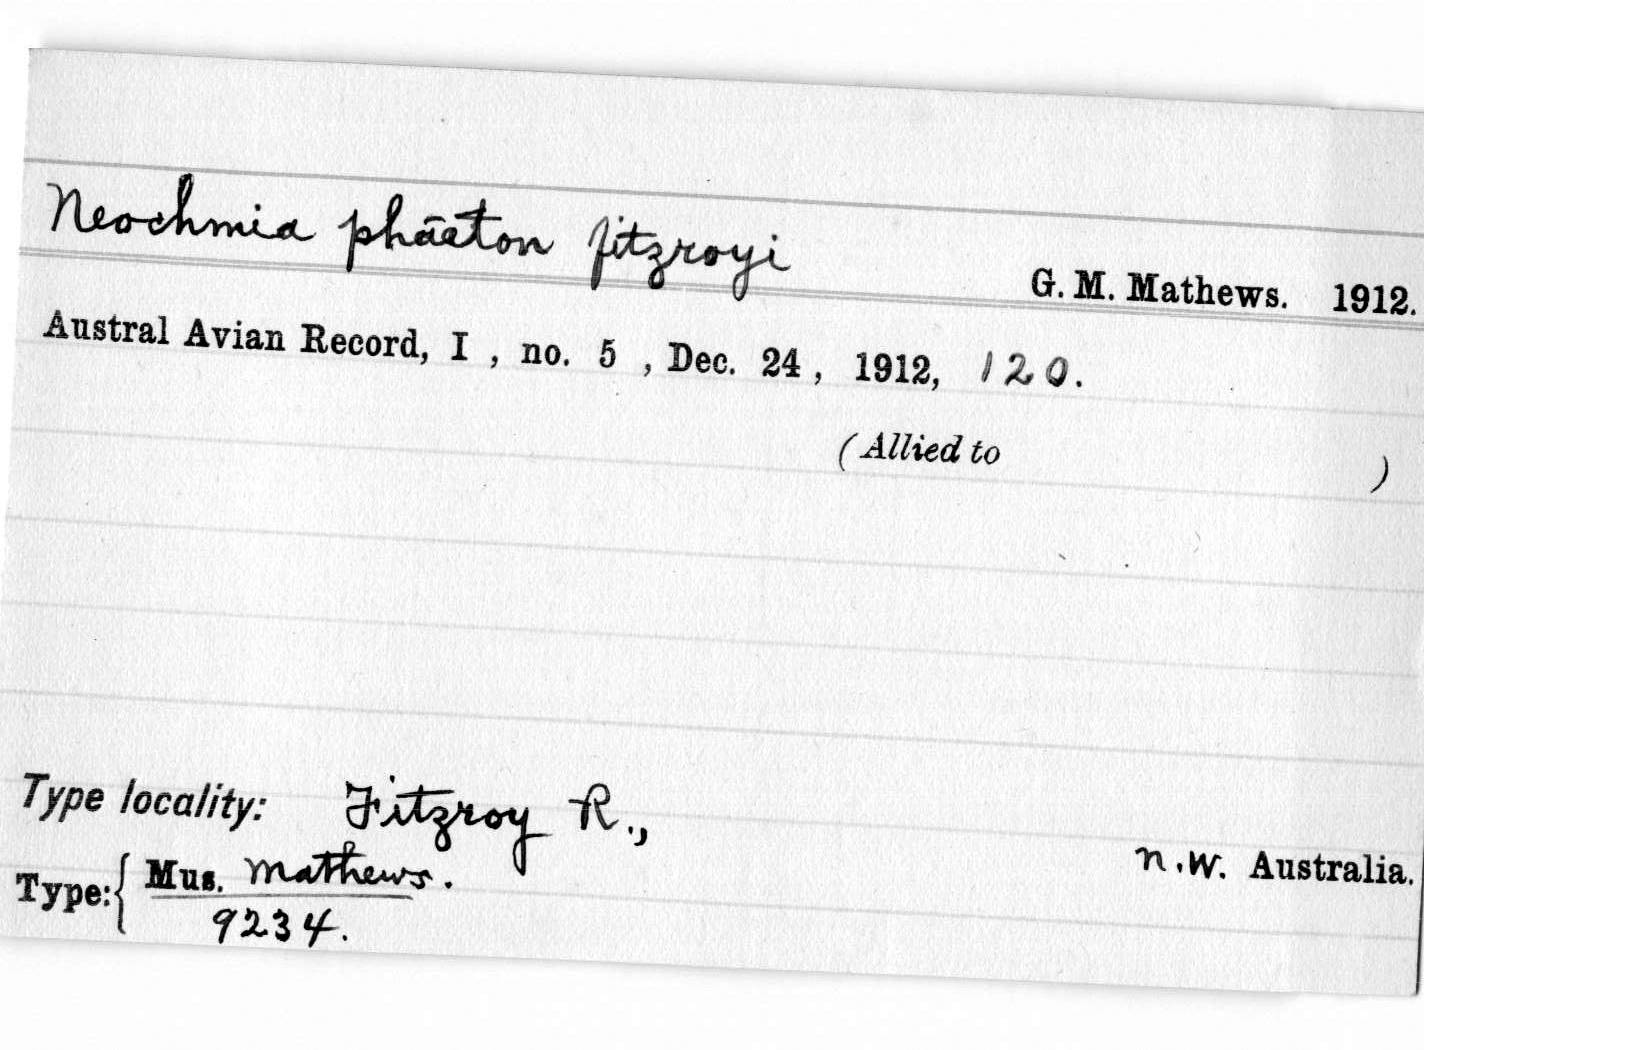 Neochmia phāeton fitzroyi
G. M. Mathews. 1912.
Austral Avian Record, I , no. 5 , Dec. 24 , 1912, 120.
(Allied to )
Type locality: Fitzroy R.,
N.W. Australia.
Type: { Mus. Mathews.
9234.